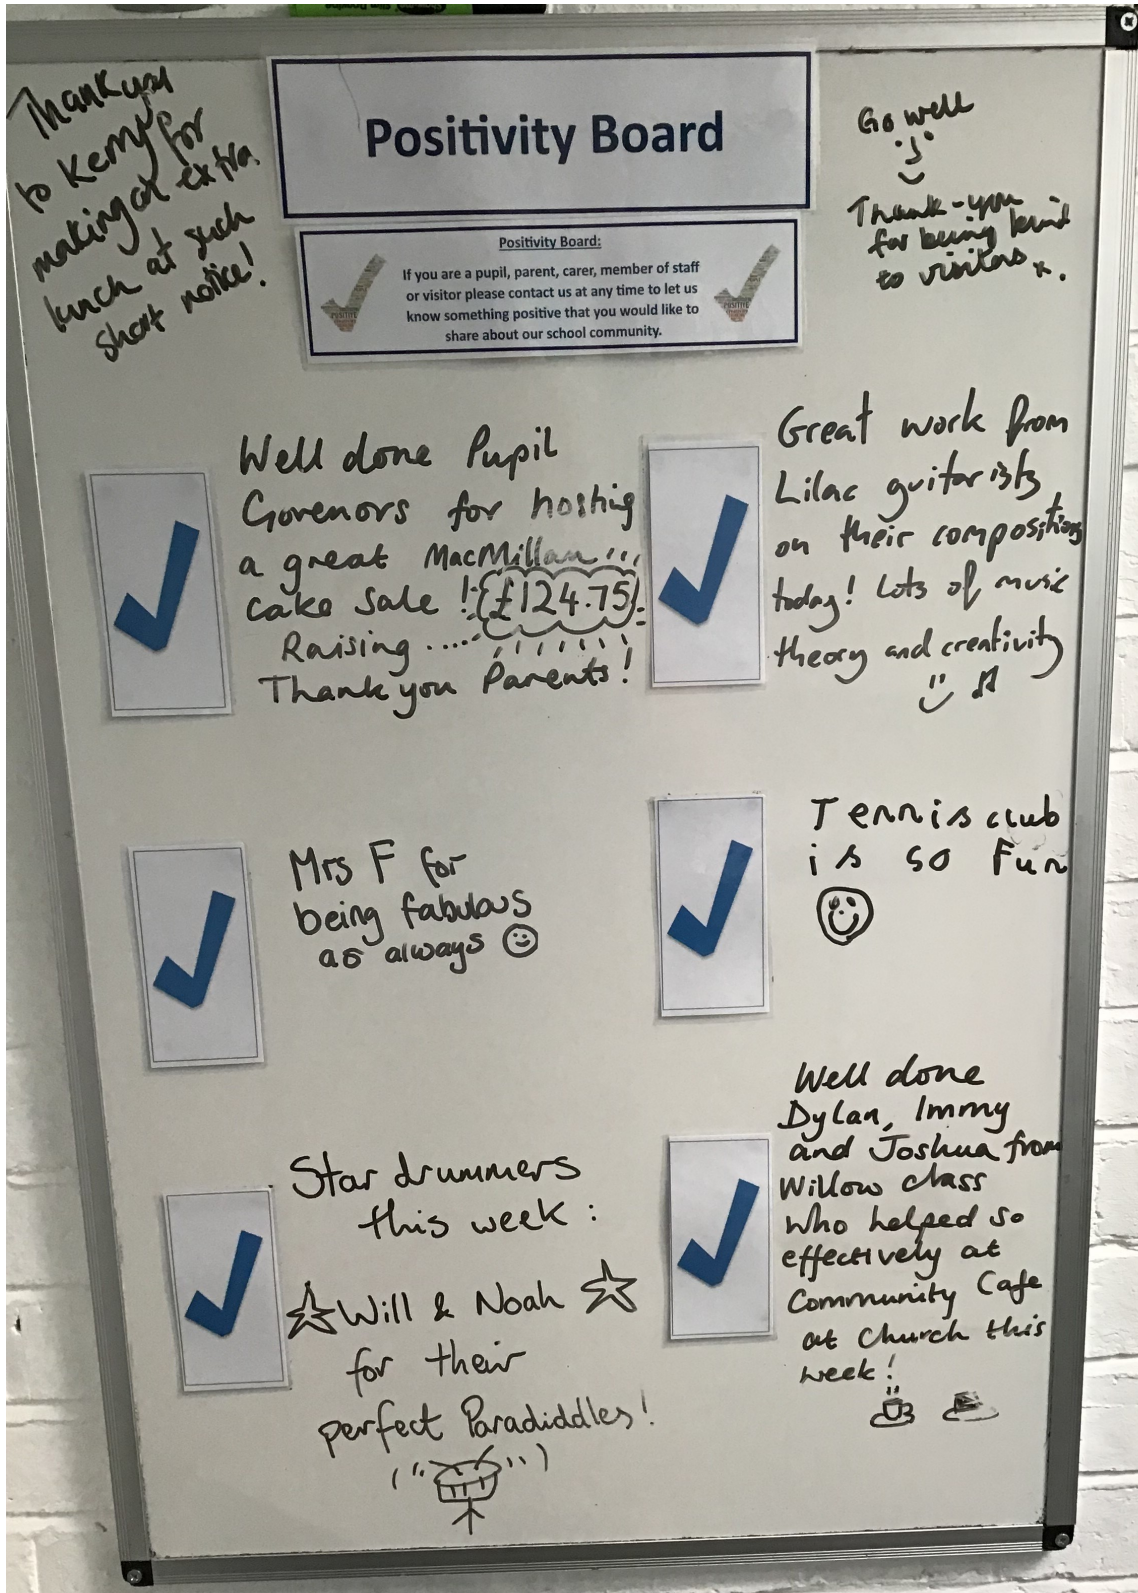 Thank you
to Kerry for
making an extra
lunch at such
short notice!
Positivity Board
Go well
Thank-you
for being kind
to visitors x.
Positivity Board:
If you are a pupil, parent, carer, member of staff
or visitor please contact us at any time to let us
know something positive that you would like to
share about our school community.
Well done Pupil
Govenors for hosting
a great MacMillan...
cake sale!
£124.75
Raising ....
Thank you Parents!
Great work from
Lilac guitarists
on their compositions
today! Lots of music
theory and creativity
Mrs F for
being fabulous
as always
Tennis club
is so Fun
Star drummers
this week:
Will & Noah
for their
perfect Paradiddles!
Well done
Dylan, Immy
and Joshua from
Willow class
who helped so
effectively at
Community Cafe
at Church this
week!